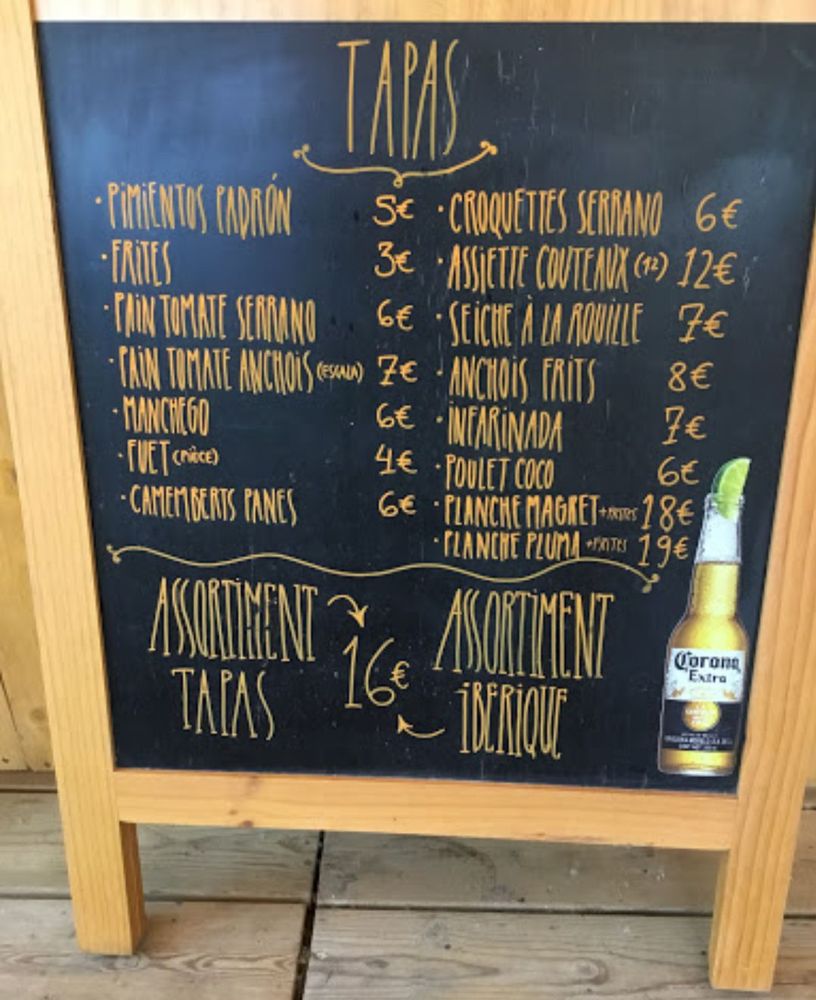 TAPAS
· PIMIENTOS PADRÓN 5€
· FRITES 3€
· PAIN TOMATE SERRANO 6€
· PAIN TOMATE ANCHOIS (ESCALA) 7€
· MANCHEGO 6€
· FUET (PIÈCE) 4€
· CAMEMBERTS PANES 6€
· CROQUETTES SERRANO 6€
· ASSIETTE COUTEAUX (12) 12€
· SEICHE À LA ROUILLE 7€
· ANCHOIS FRITS 8€
· INFARINADA 7€
· POULET COCO 6€
· PLANCHE MAGRET + FRITES 18€
· PLANCHE PLUMA + FRITES 19€
ASSORTIMENT
TAPAS
16€
ASSORTIMENT
IBERIQUE
Corona
Extra